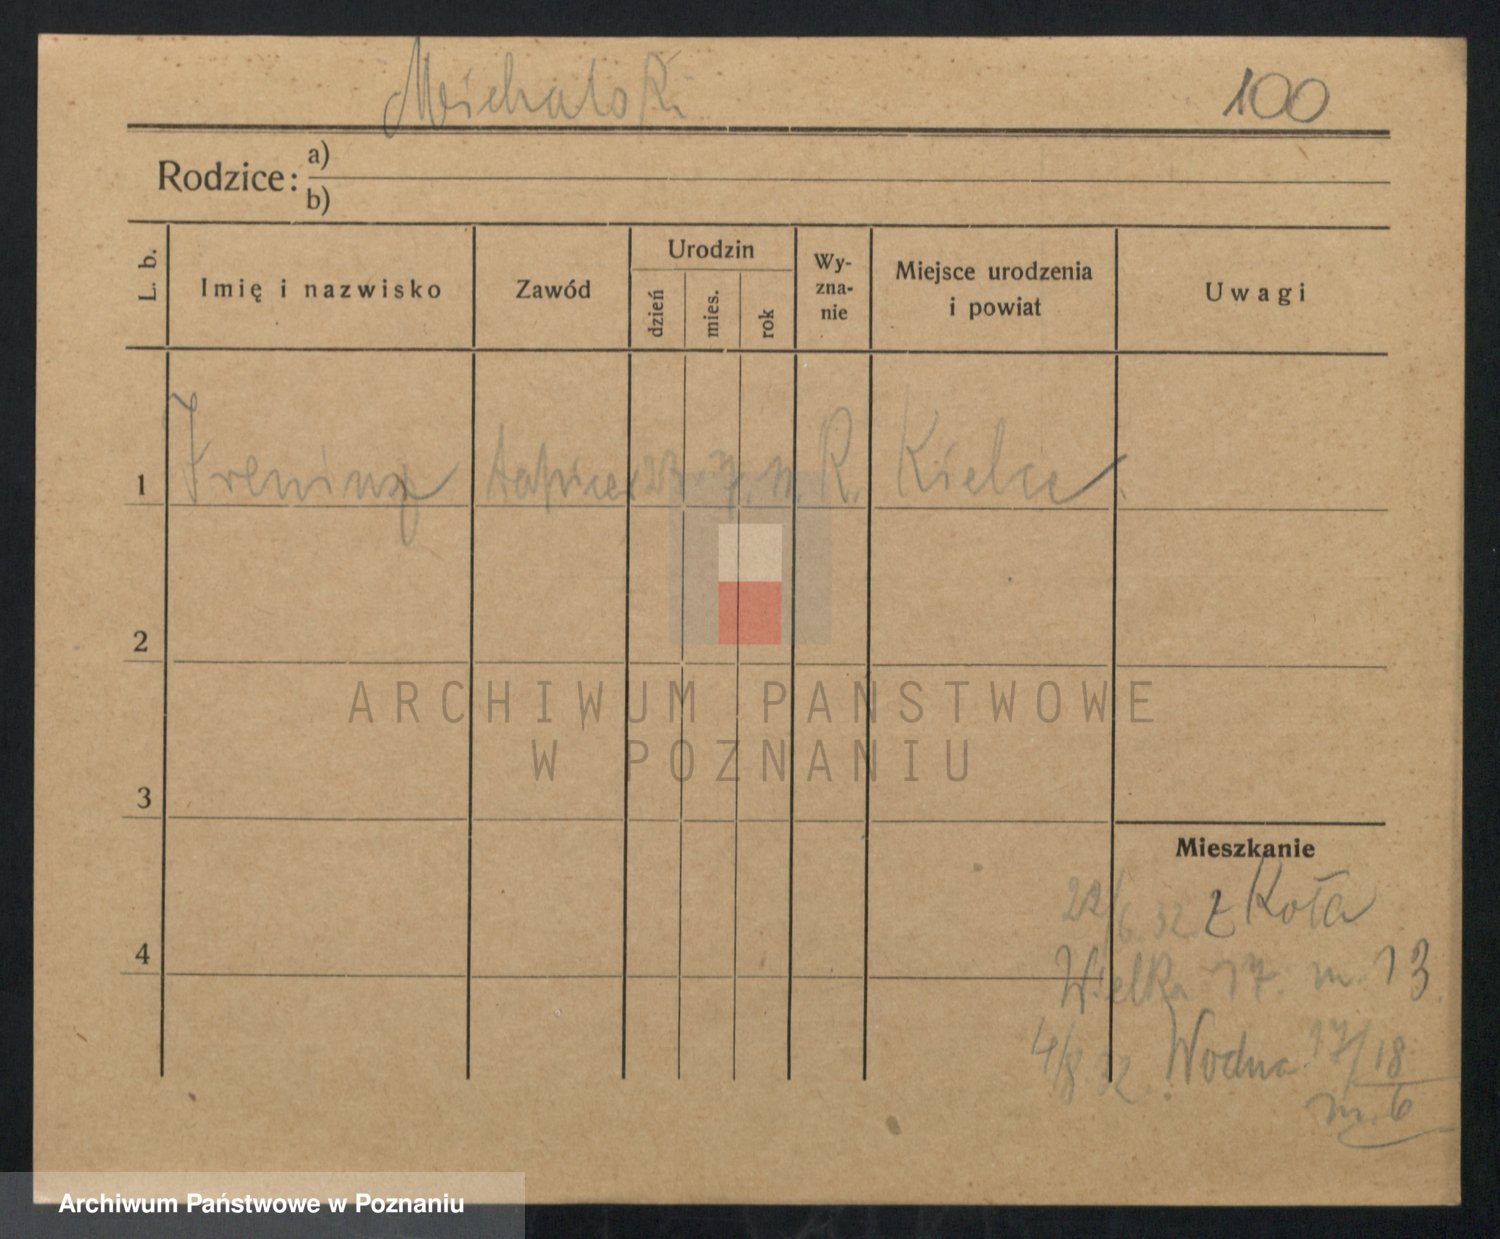 Michalski 100
Rodzice: a)
b)
L. b. Imię i nazwisko Zawód Urodzin dzień mies. rok Wy-zna-nie Miejsce urodzenia i powiat Uwagi
1 Ireniusz tapicer 7. 11. R. Kielce
2
3
Mieszkanie
22/6 32 z Koła
4
Wielka 17. m. 13.
4/8 32. Wodna 17/18
m. 6
ARCHIWUM PAŃSTWOWE
W POZNANIU
Archiwum Państwowe w Poznaniu